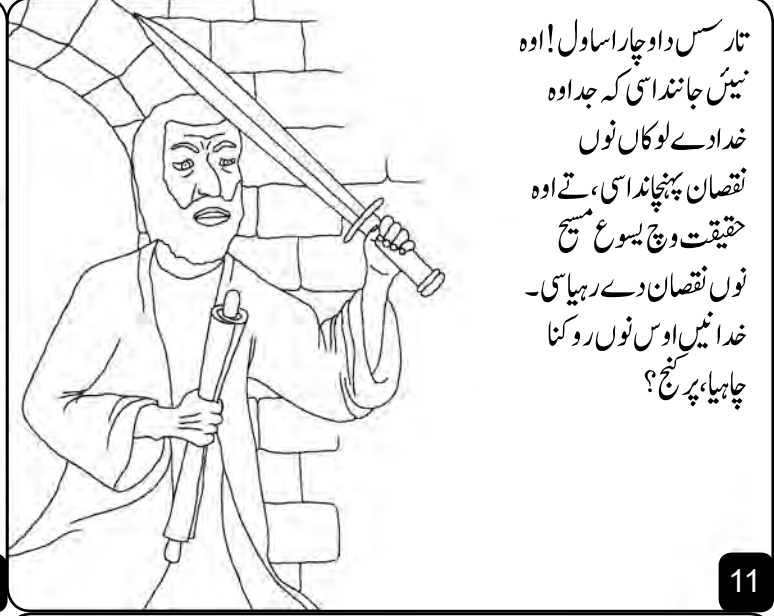 تارسس دا وچارا ساول! اوہ
نیئں جاننداسی کہ جد اوہ
خدا دے لوکاں نوں
نقصان پہنچانداسی، تے اوہ
حقیقت وچ یسوع مسیح
نوں نقصان دے رہیاسی۔
خدا نیں اوس نوں روکنا
چاہیا، پر کنج؟
11